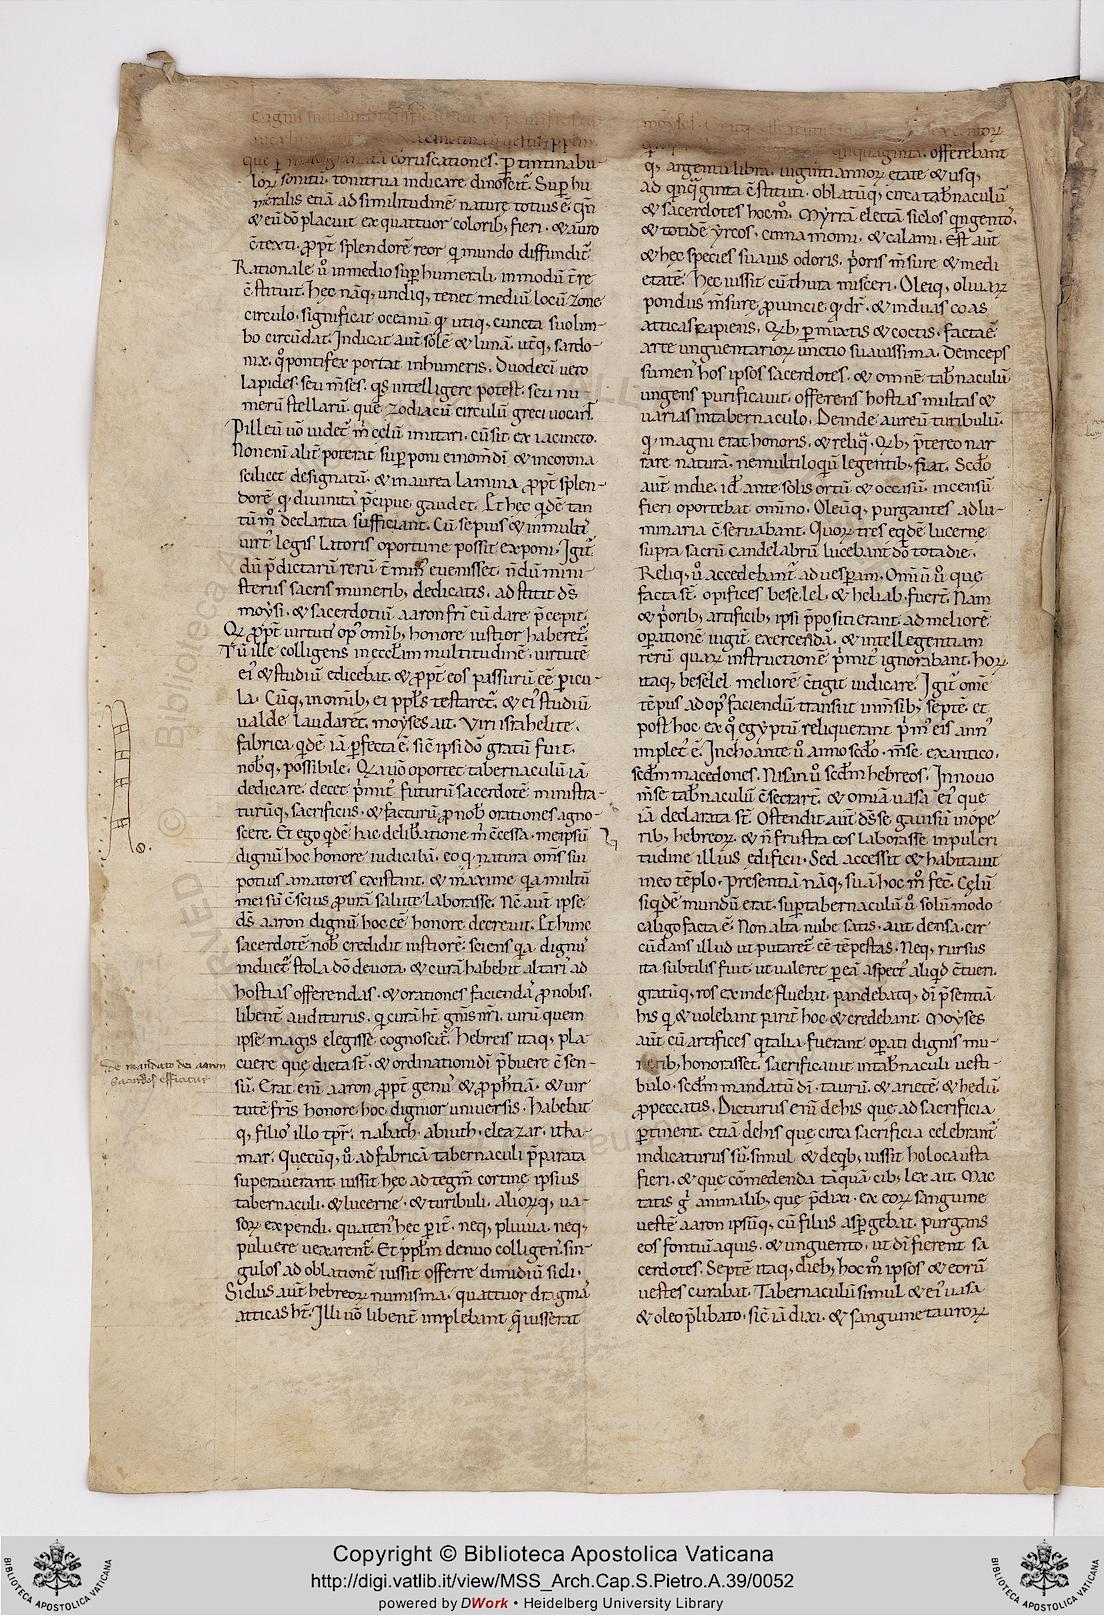 que p malogranata coruscationes. p tintinabu
loꝝ sonitū. tonitrua indicare dinoscit᷑. Suphu
meralis etiā ad similitudinē naturę totius ē. qn̄
& eū dō placuit ex quattuor colorib; fieri. & auro
c̄texti. ꝓpt᷑ splendorē reor q mundo diffundit᷑
Rationale ů in medio suphumerali. in modū t̄re
c̄stituit. hęc nāq; undiq; tenet mediū locū zone
circulo. significat oceanū qi utiq; cuncta suo lim-
bo circūdat. Indicat aut̄ solē & lunā. ut̄q; sardo-
nix. q̊ pontifex portat in humeris. Duodeci uero
lapides. seu m̄ses. qs intelligere potest. seu nu
merū stellarū. que zodiacū circulū greci uocan̄t.
Pilleū uō uidet᷑ m̄ celū imitari. cū sit ex iacincto.
Non eni alit᷑ poterat sup poni ei nom̄ dī. & in corona
scilicet designatū. & in aurea lamina ꝓpt᷑ splen-
dorē. q diuinitas p̄cipue gaudet. Et hęc qdē tan
tū m̊ declarata sufficiant. Cū sepius & in multis
uirt᷑ legis latoris oportune possit exponi. Igit᷑
dū p̄dictarū rerū t̄min᷑ euenisset. n̄dū mini
sterus sacris munerib; dedicatis. adstitit ds̄
moysi. & sacerdotiū aaron fr̄i eū dare p̄cepit.
Qi ꝓpt᷑ virtutis op᷑ omīb; honore iustior haberet᷑.
Tū ille colligens in ecct̄iam multitudinē. uirtutē
ei᷑ & studiū edicebat. & ꝓpt᷑ eos passurū eē picu
la. Cūq; in omīb; ei pp̄ls testaret᷑. & ei᷑ studiū
ualde laudaret. moyses ait. Viri israhelite.
fabrica qdē iā pfecta ē. sic̄ ipsi dō gratū fuit.
nob̄q; possibile. Qa uō oportet tabernaculū iā
dedicare. decet p̄mit᷑ futurū sacerdotē ministra-
turūq; sacrificiis. & facturū ꝓ nob̄ orationes agno-
scere. Et ego qdē hac deliƀatione m̄ c̄cessa. meipsū
dignū hoc honore iudicabā. eo q natura om̄s sui
potius amatores existant. & maxime qa multū
mei sū c̄scius ꝓ ur̄a salute laborasse. Nc̄ aut̄ ipse
ds̄ aaron dignū hoc eē honore decreuit. Et hunc
sacerdotē nob̄ credidit iustiorē. sciens qa dignus
induet᷑ stola dō deuota. & curā habebit altaris ad
hostias offerendas. & orationes faciendas ꝓ nobis.
libent᷑ auditurus. q curā ht̄ gn̄is nr̄i. uirū quem
ipse magis elegisse cognoscit᷑. hebreis itaq; pla
cuere que dicta st̄. & ordinationi dī p̄buere c̄sen-
sū. Erat eni aaron ꝓpt᷑ gen᷑ & ꝓphtiā. & uir
tutē fr̄is honore hoc dignior uniuersis. habebat
q; filios illo tpr̄. nabath. abiuth. eleazar. itha-
mar. Quecūq; ů ad fabricā tabernaculi p̄parata
superauerant. iussit hęc ad tegm̄ cortine ipsius
tabernaculi. & lucerne. & turibuli. alioꝝq; ua-
soꝝ expendi. quaten᷑ hęc p it̄. neq; pluuia. neq;
puluere uexarent᷑. Et pp̄lm denuo colligens. sin-
gulos ad oblationē iussit offerre dimidiū sicli.
Siclus aut̄ hebreoꝝ numisma. quattuor dragmas
atticas ht̄. Illi uō libent᷑ implebant q̄ iusserat
moyses.
quinquaginta. offerebant
q; argentū libra. uiginti annoꝝ etate & usq;
ad qnqginta c̄stituti. oblatūq; circa tabnaculū
& sacerdotes hoc m̊. Myrrā electā siclos qngentos.
& totidē yreos. cinnamomi. & calami. Est aut̄
& hęc species suauis odoris. p̄oris m̄sure & medi
etatē. hęc iussit cū thura misceri. Oleiq; oliuaꝝ
pondus m̄sure ꝓuincie q dr̄. & in duas coas
atticas capiens. Qib; pmixtis & coctis. facta ē
arte unguentarioꝝ unctio suauissima. Deinceps
sumens hos ipsos sacerdotes. & omnē tabnaculū
ungens purificauit. offerens hostias multas &
uarias in tabernaculo. Deinde aureū turibulū.
q magni erat honoris. & reliq. Qib; p̄tereo nar
rare naturā. ne multiloqū legentib; fiat. Scdo
aut̄ in die. id ante solis ortū & occasū. incensū
fieri oportebat omīno. Oleūq; purgantes ad lu-
minaria c̄seruabant. Quoꝝ tres eqdē lucerne
supra sacrū candelabrū lucebant dō tota die.
Reliq; ů accedebant᷑ ad uesperam. Omiū ů que
facta st̄. opifices beselel. & heliab. fuer̄t. Nam
& p̄orib; artificib; ipsi p̄positi erant. ad meliorē
opationē iugit᷑ exercendā. & intellegentiam
rerū quaꝝ instructionē p̄mit᷑ ignorabant. hoꝝ
itaq; beselel meliorē c̄tigit iudicare. Igit᷑ om̄e
tēpus ad op᷑ faciendū transiit m̄sib; septē. et
post hoc ex q̊ egyptū reliquerant p̄m᷑ eis ann᷑
implet᷑ ē. Inchoante ů anno scdo. m̄se exantico.
scdm macedones. Nisan ů scdm hebreos. In nouo
m̄se tabnaculū c̄secrar̄t. & omia uasa ei᷑ que
iā declarata st̄. Ostendit aut̄ ds̄ se gauisū in ope
rib; hebreoꝝ. & n̄ frustra eos laborasse in pulcri
tudine illius edificii. Sed accessit & habitauit
in eo tēplo. Presentiā nāq; suā hoc m̊ fec̄. Celū
siqdē mundū erat. sup tabernaculū ů solū modo
caligo facta ē. Non alta nube satis. aut densa. cir
cūdans illud ut putaret᷑ eē tēpestas. Neq; rursus
ita subtilis fuit. ut ualeret p eā aspect᷑ aliqd c̄tueri.
gratūq; ros exinde fluebat. pandebatq; dī p̄sentiā
his q & uolebant parit᷑ hoc & credebant. Moyses
aut̄ cū artifices q talia fuerant opati dignis mu-
nerib; honorasset. sacrificauit in tabnaculi uesti-
bulo. scdm mandatū dī. taurū. & arietē & hedū.
ꝓ peccatis. Dicturus eni de his que ad sacrificia
ptinent. etiā de his que circa sacrificia celebrant᷑
indicaturus sū. simul & de qib; iussit holocausta
fieri. & que cōmedenda tāquā cib; lex ait. Mac
tatis g̊ animalib; que p̄dixi. ex eoꝝ sanguine
uestē aaron ipsūq; cū filiis aspgebat. purgans
eos fontiū aquis. & unguento. ut dī fierent sa
cerdotes. Septē itaq; dieb; hoc m̊ ipsos & eorū
uestes curabat. Tabernaculū simul & ei᷑ uasa
& oleo p̄libato. sic̄ iā dixi. & sanguine tauroꝝ
de mandato dei aaron
sacerdos efficitur
Copyright © Biblioteca Apostolica Vaticana
http://digi.vatlib.it/view/MSS_Arch.Cap.S.Pietro.A.39/0052
powered by DWork • Heidelberg University Library
BIBLIOTECA APOSTOLICA VATICANA
BIBLIOTECA APOSTOLICA VATICANA